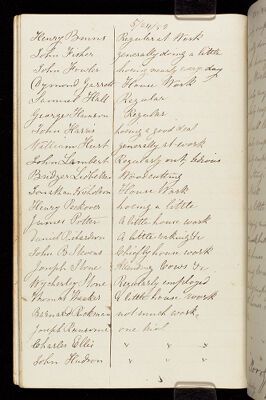 Henry Bowns Regular at Work
John Fisher generally doing a little
John Fowler hoeing nearly every day
Aymond Garrett House Work
Samuel Hall Regular
George Hanson Regular
John Harris hoeing a good deal
William Hurt generally at work
John Lambert Regularly out
Woodcutting
Jonathan Nicholson House Work
Henry Peckover hoeing a little
James Potter A little house work
Samuel Richardson A little
John B. Stevens Chiefly house work
Joseph Stone Attending Cows &c
Wycherly Stone Regularly employed
Thomas Walker A little house work
Barnard Rickman not much work
Joseph Ransome one trial
Charles Ellis " " "
John Hudson " " "